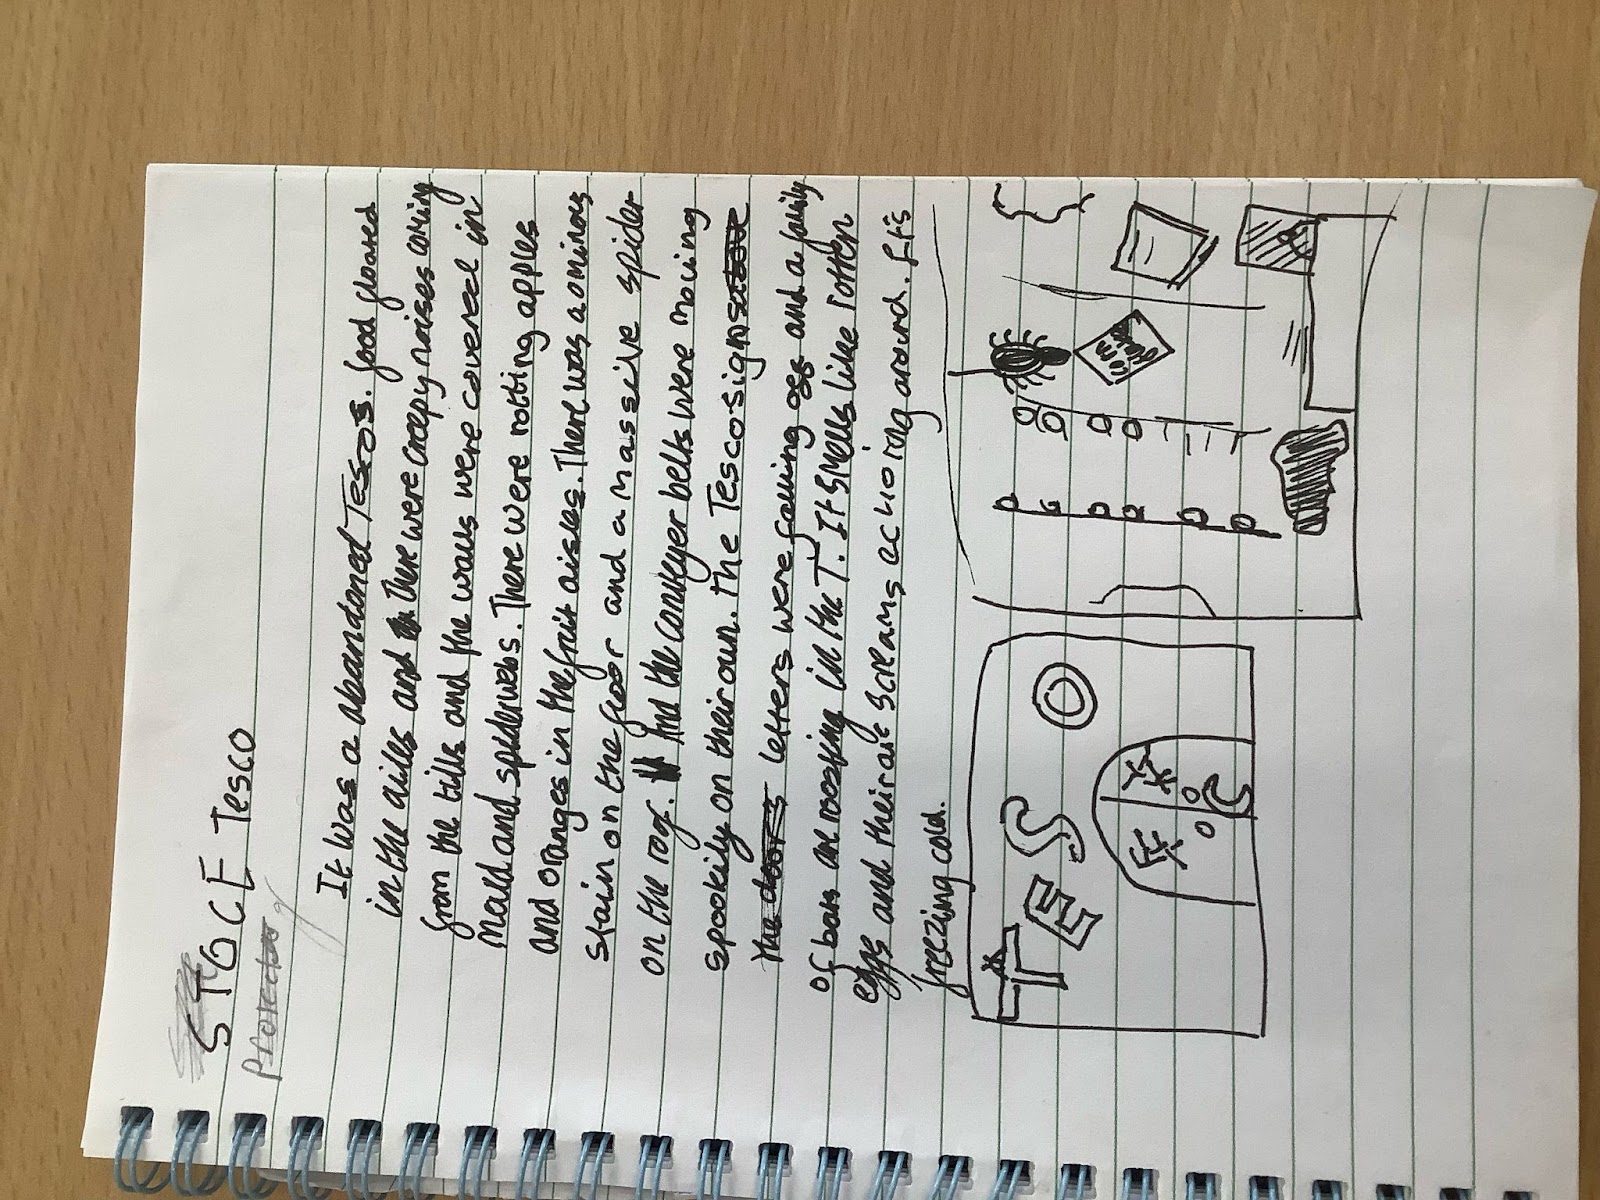 STOCE Tesco
It was a abandoned Tescos. food floated
in the ailes and there were creepy noises coming
from the tills and the walls were covered in
Mould and spiderwebs. There were rotting apples
and oranges in the fruit aisles. There was a ominous
stain on the floor and a massive spider
on the roof. And the conveyer belts were moving
spookily on their own. The Tesco sign
letters were falling off and a family
of bats are roosting in the T. It smells like rotten
eggs and their are screams echoing around. It's
freezing cold.
TES